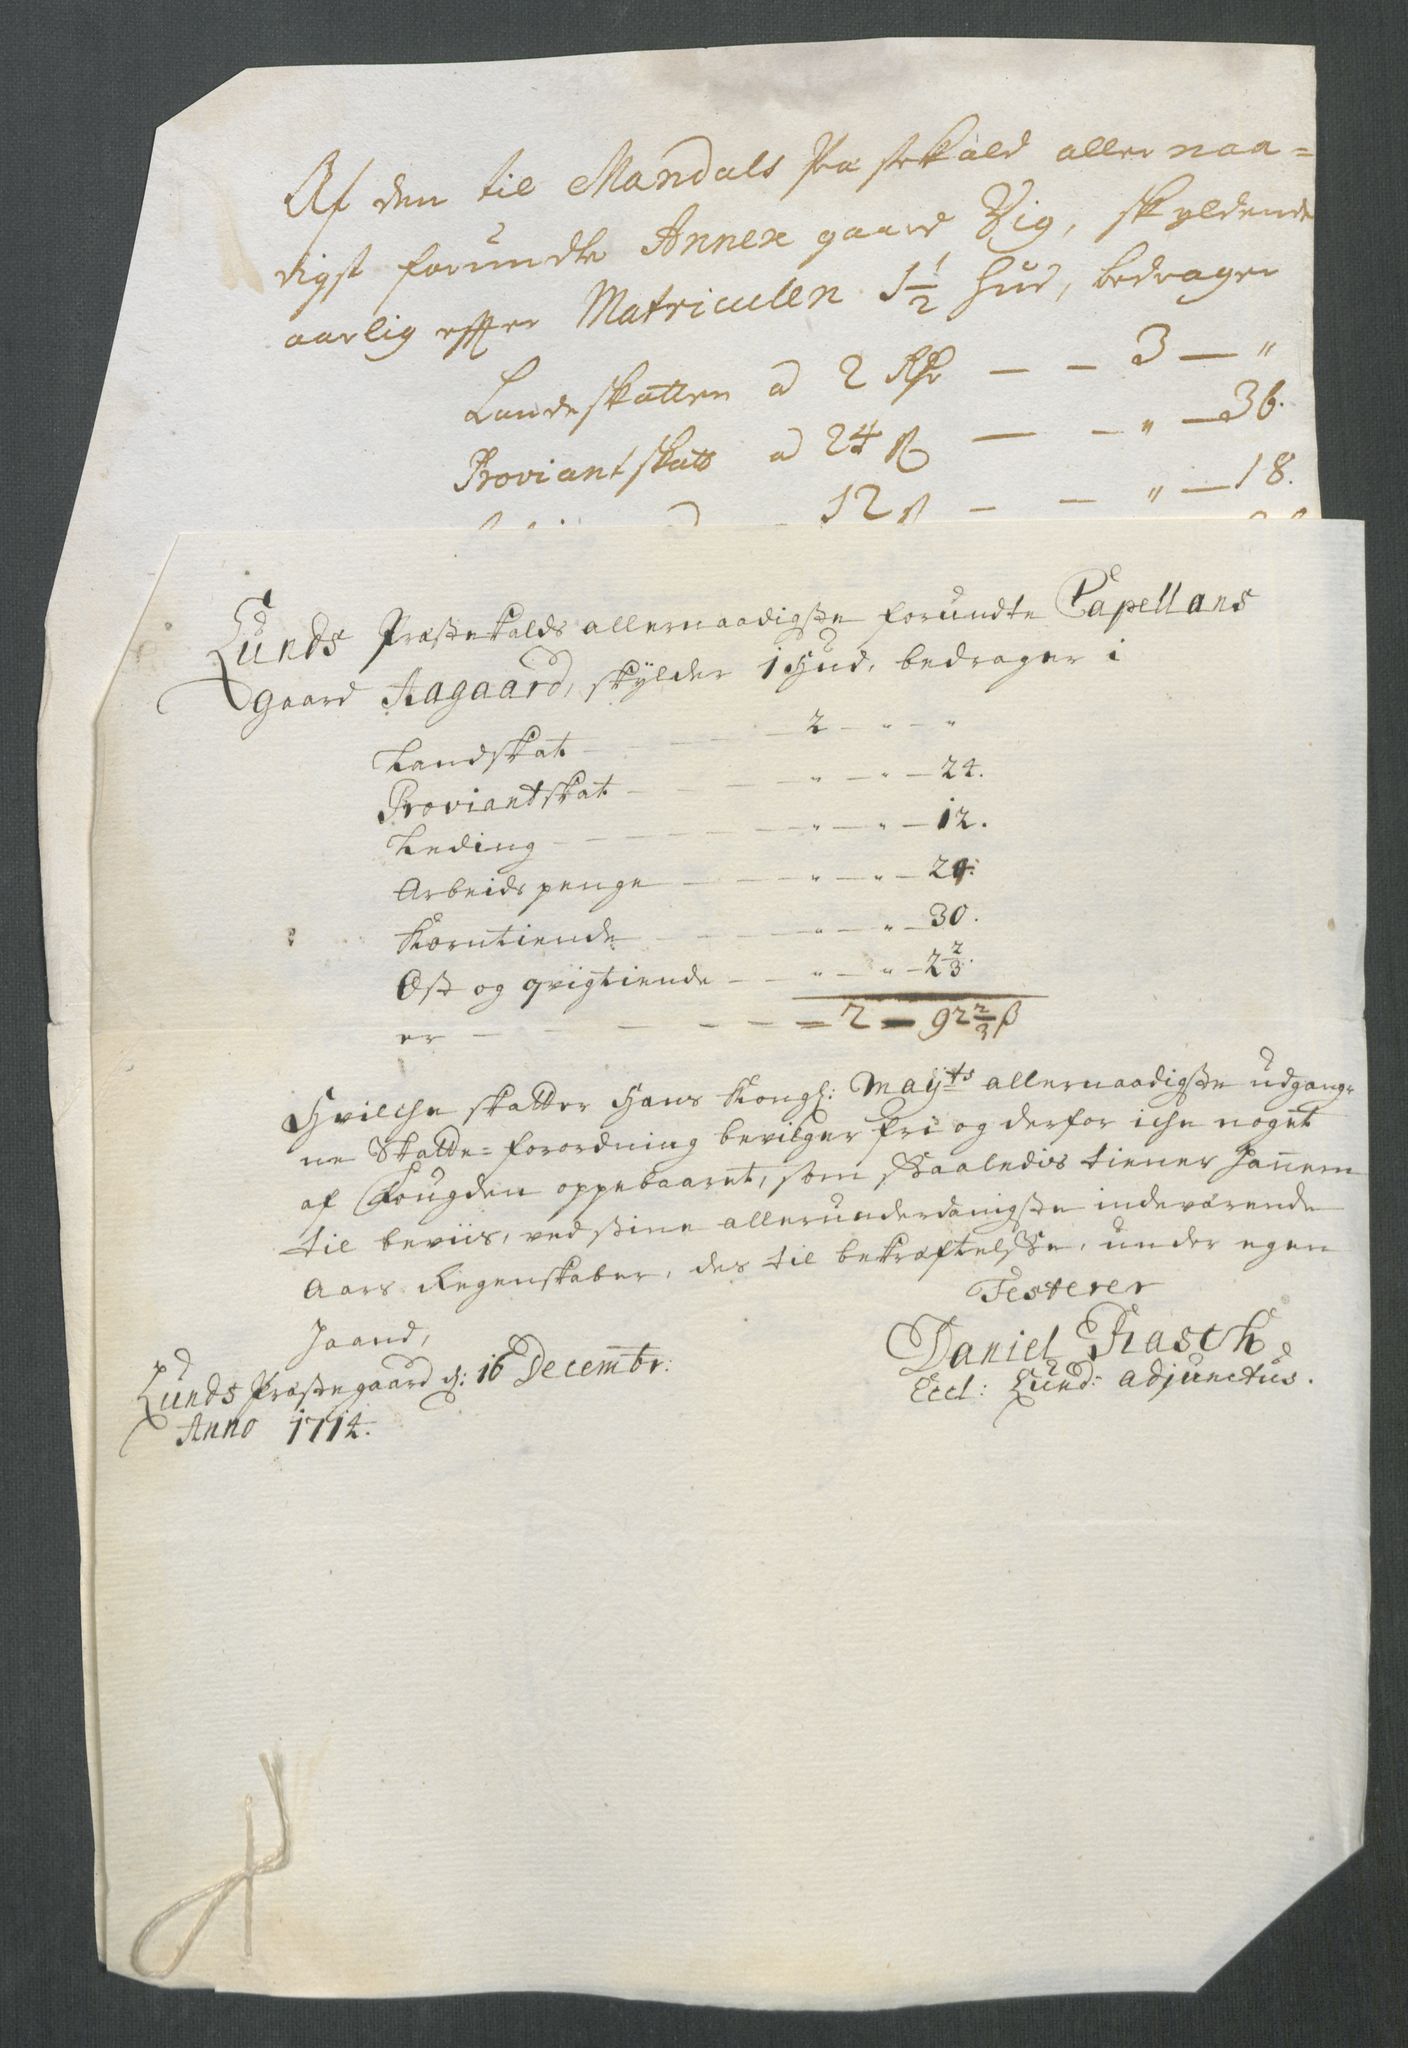 Af den til Mandals Præstekald aller naa=
digst forundte Annex gaard Vig, skyldende
aarlig effter Matriculen 1½ Hud, bedrager
Landskatten a 2 Rdr — — 3 — "
Proviantskatt a 24 ß — — " — 36.
12 ß — — " — 18.
Lunds Præstekalds allernaadigste forundte Capellans
gaard Aagaard, skylder 1 Hud, bedrager i
Landskat — — — 2 — " — "
Proviantskat — — — " — " — 24.
Leding — — — " — " — 12.
Arbeids penge — — — " — " — 24.
Korntiende — — — " — " — 30.
Ost og qvigtiende — — " — " — 2 2/3.
er — — — — — 2 — 92 2/3 ß
Hvilche skatter Hans Kongl: Mayts allernaadigste udgang=
ne Skatte=forordning bevilger fri og derfor iche noget
af Fougden oppebaaret, som saaledis tiener hannem
til beviis, ved sine allerunderdanigste indeværende
Aars Regenskaber, des til bekræftelse, under egen
Haand,
Testerer
Lunds Præstegaard d: 16 Decembr:
Anno 1714.
Daniel Rasch
Eccl: Lund: adjunctus.